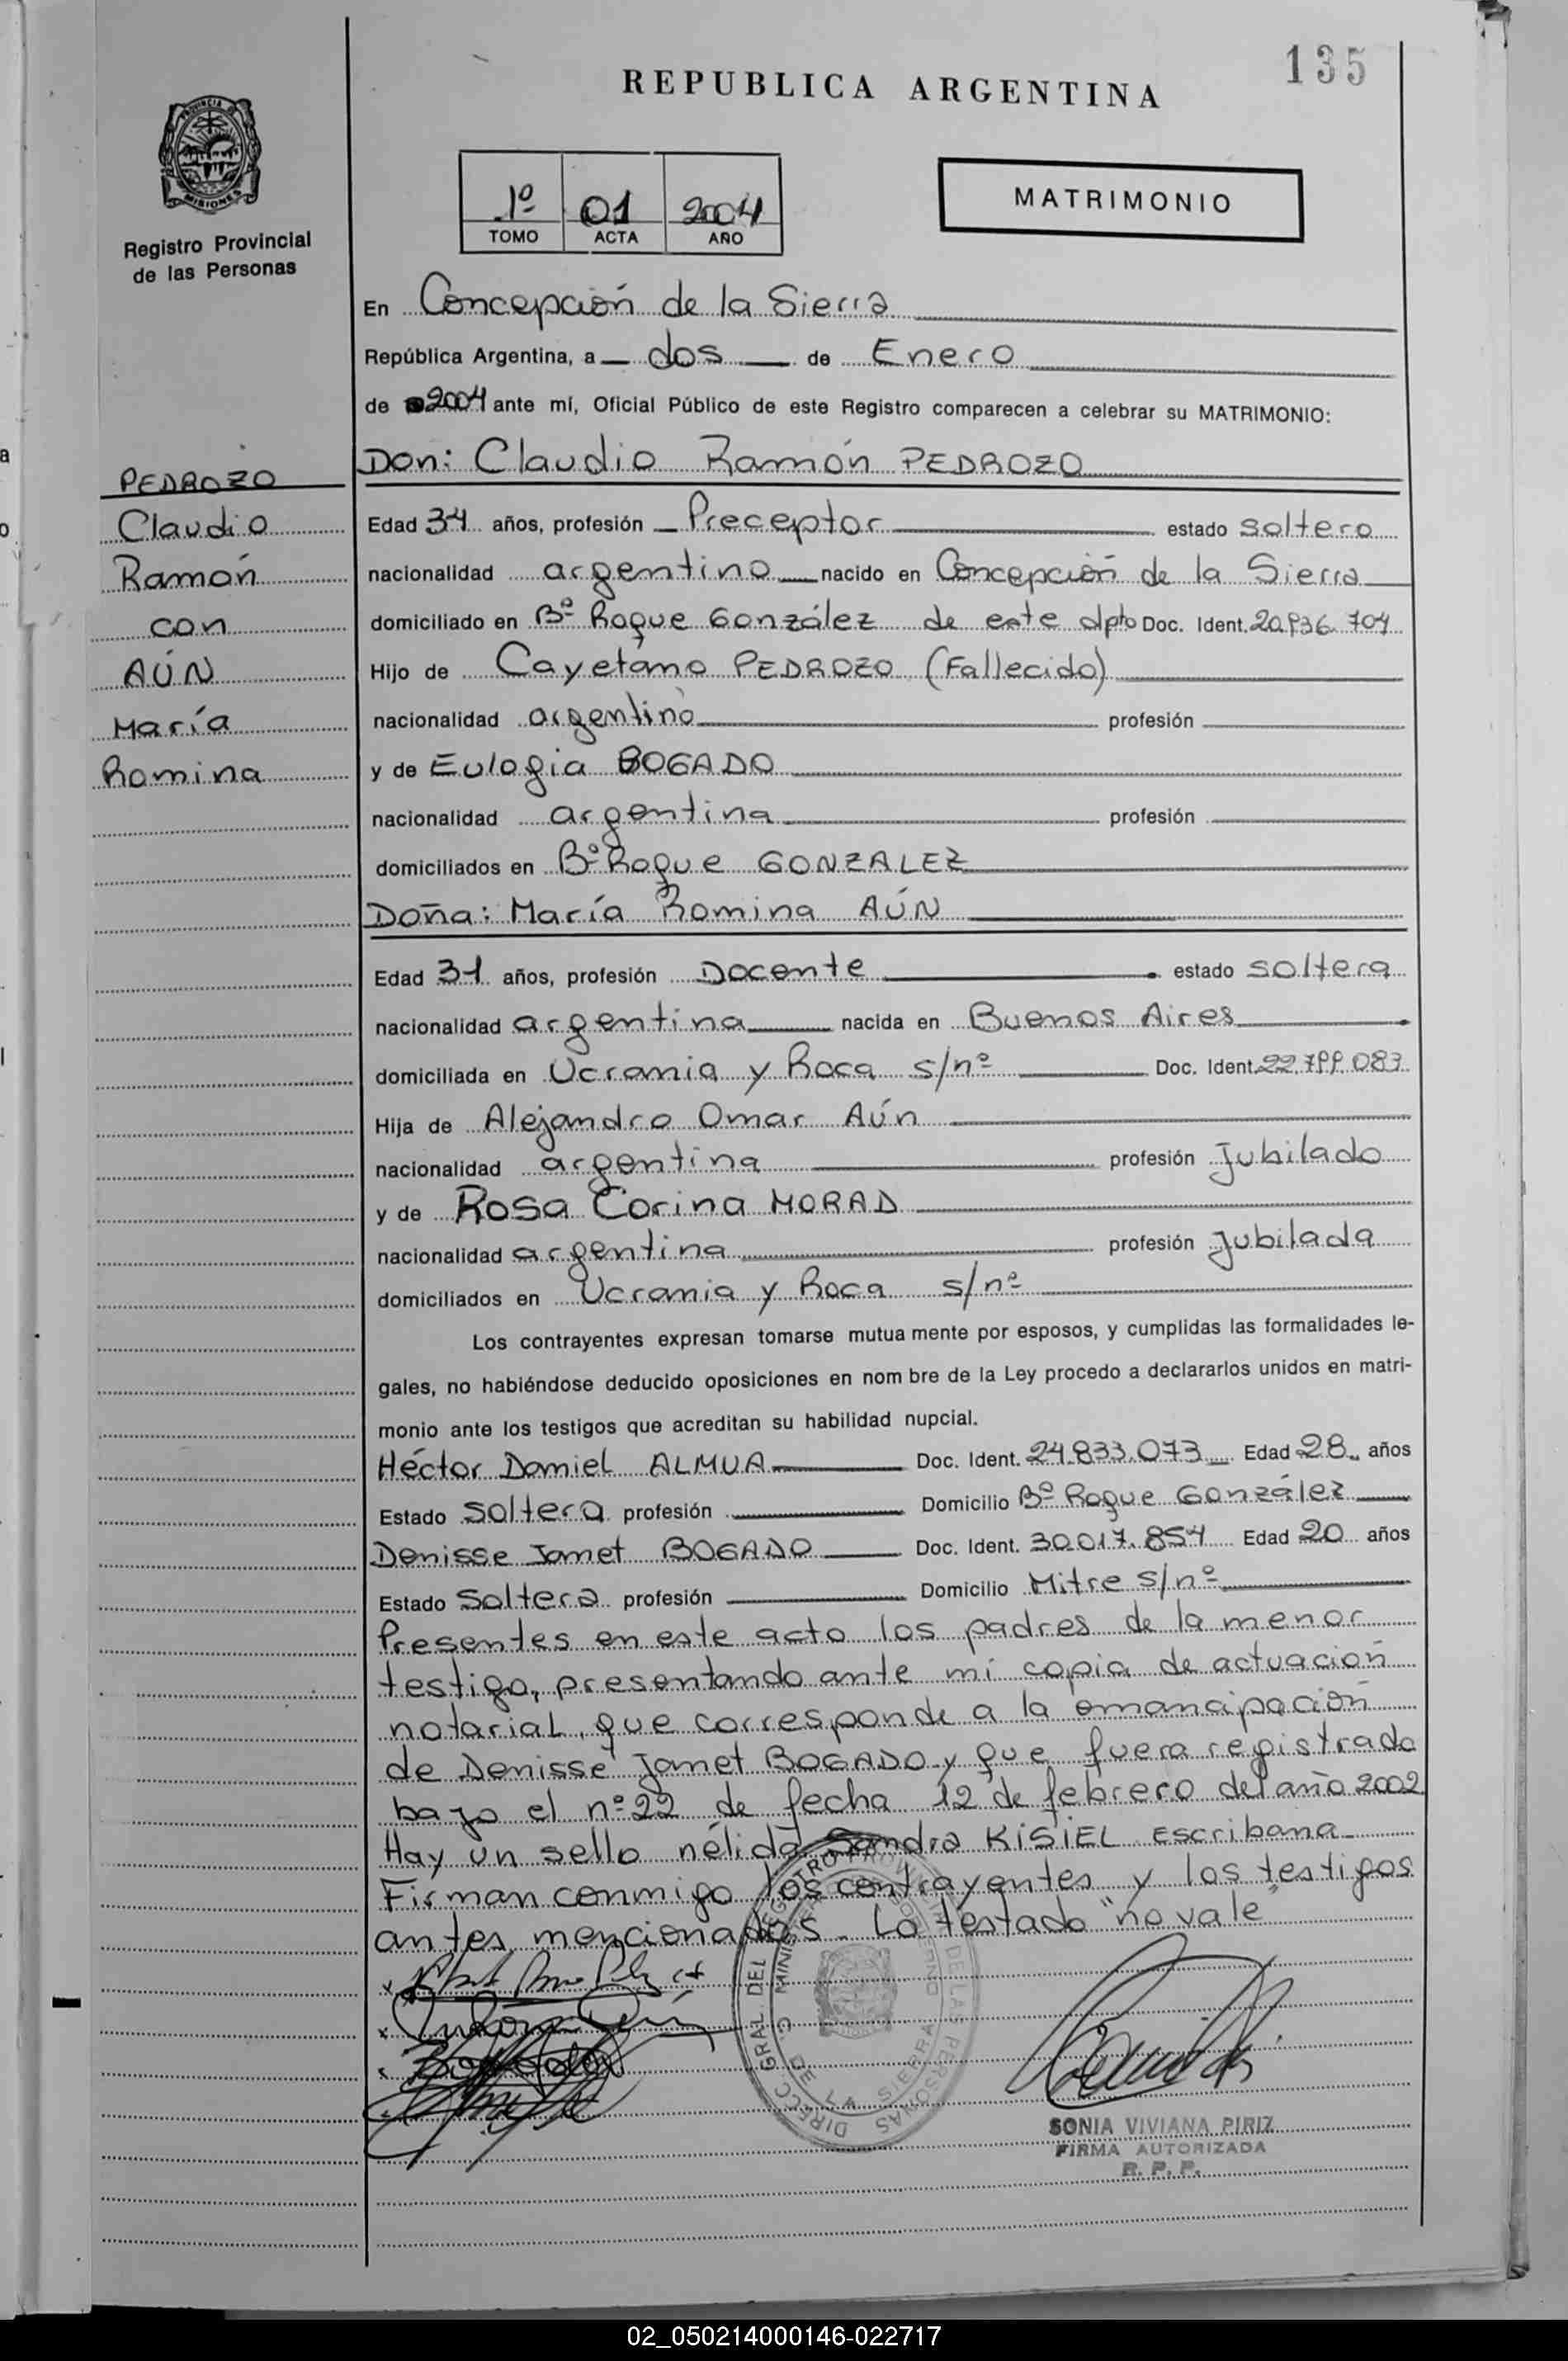 135
REPUBLICA ARGENTINA
PROVINCIA DE
MISIONES
Registro Provincial
de las Personas
1º 01 2004
TOMO ACTA AÑO
MATRIMONIO
En Concepción de la Sierra
República Argentina, a dos de Enero
de 2004 ante mí, Oficial Público de este Registro comparecen a celebrar su MATRIMONIO:
PEDROZO
Claudio
Ramón
con
AÚN
María
Romina
Don: Claudio Ramón PEDROZO
Edad 34 años, profesión Preceptor estado soltero
nacionalidad argentino nacido en Concepción de la Sierra
domiciliado en Bº Roque González de este dpto Doc. Ident. 20.936.704
Hijo de Cayetano PEDROZO (Fallecido)
nacionalidad argentino profesión
y de Eulogia BOGADO
nacionalidad argentina profesión
domiciliados en Bº Roque GONZALEZ
Doña: María Romina AÚN
Edad 31 años, profesión Docente estado soltera
nacionalidad argentina nacida en Buenos Aires
domiciliada en Ucrania y Roca s/nº Doc. Ident. 22.799.083
Hija de Alejandro Omar Aún
nacionalidad argentina profesión Jubilado
y de Rosa Corina MORAD
nacionalidad argentina profesión Jubilada
domiciliados en Ucrania y Roca s/nº
Los contrayentes expresan tomarse mutua mente por esposos, y cumplidas las formalidades le-
gales, no habiéndose deducido oposiciones en nom bre de la Ley procedo a declararlos unidos en matri-
monio ante los testigos que acreditan su habilidad nupcial.
Héctor Daniel ALMUA Doc. Ident. 24.833.073 Edad 28 años
Estado soltera profesión Domicilio Bº Roque González
Denisse Jamet BOGADO Doc. Ident. 30.017.854 Edad 20 años
Estado Soltera profesión Domicilio Mitre s/nº
Presentes en este acto los padres de la menor
testigo, presentando ante mí copia de actuación
notarial, que corresponde a la emancipación
de Denisse Jamet BOGADO y que fuera registrada
bajo el nº 22 de fecha 12 de febrero del año 2002
Hay un sello nélida Sandra KISIEL Escribana
Firman conmigo los contrayentes y los testigos
antes mencionados. Lo testado "no vale"
DIRECC. GRAL. DEL REGISTRO PROVINCIAL DE LAS PERSONAS
DE LA SIERRA
SONIA VIVIANA PIRIZ
FIRMA AUTORIZADA
R. P. P.
02_050214000146-022717